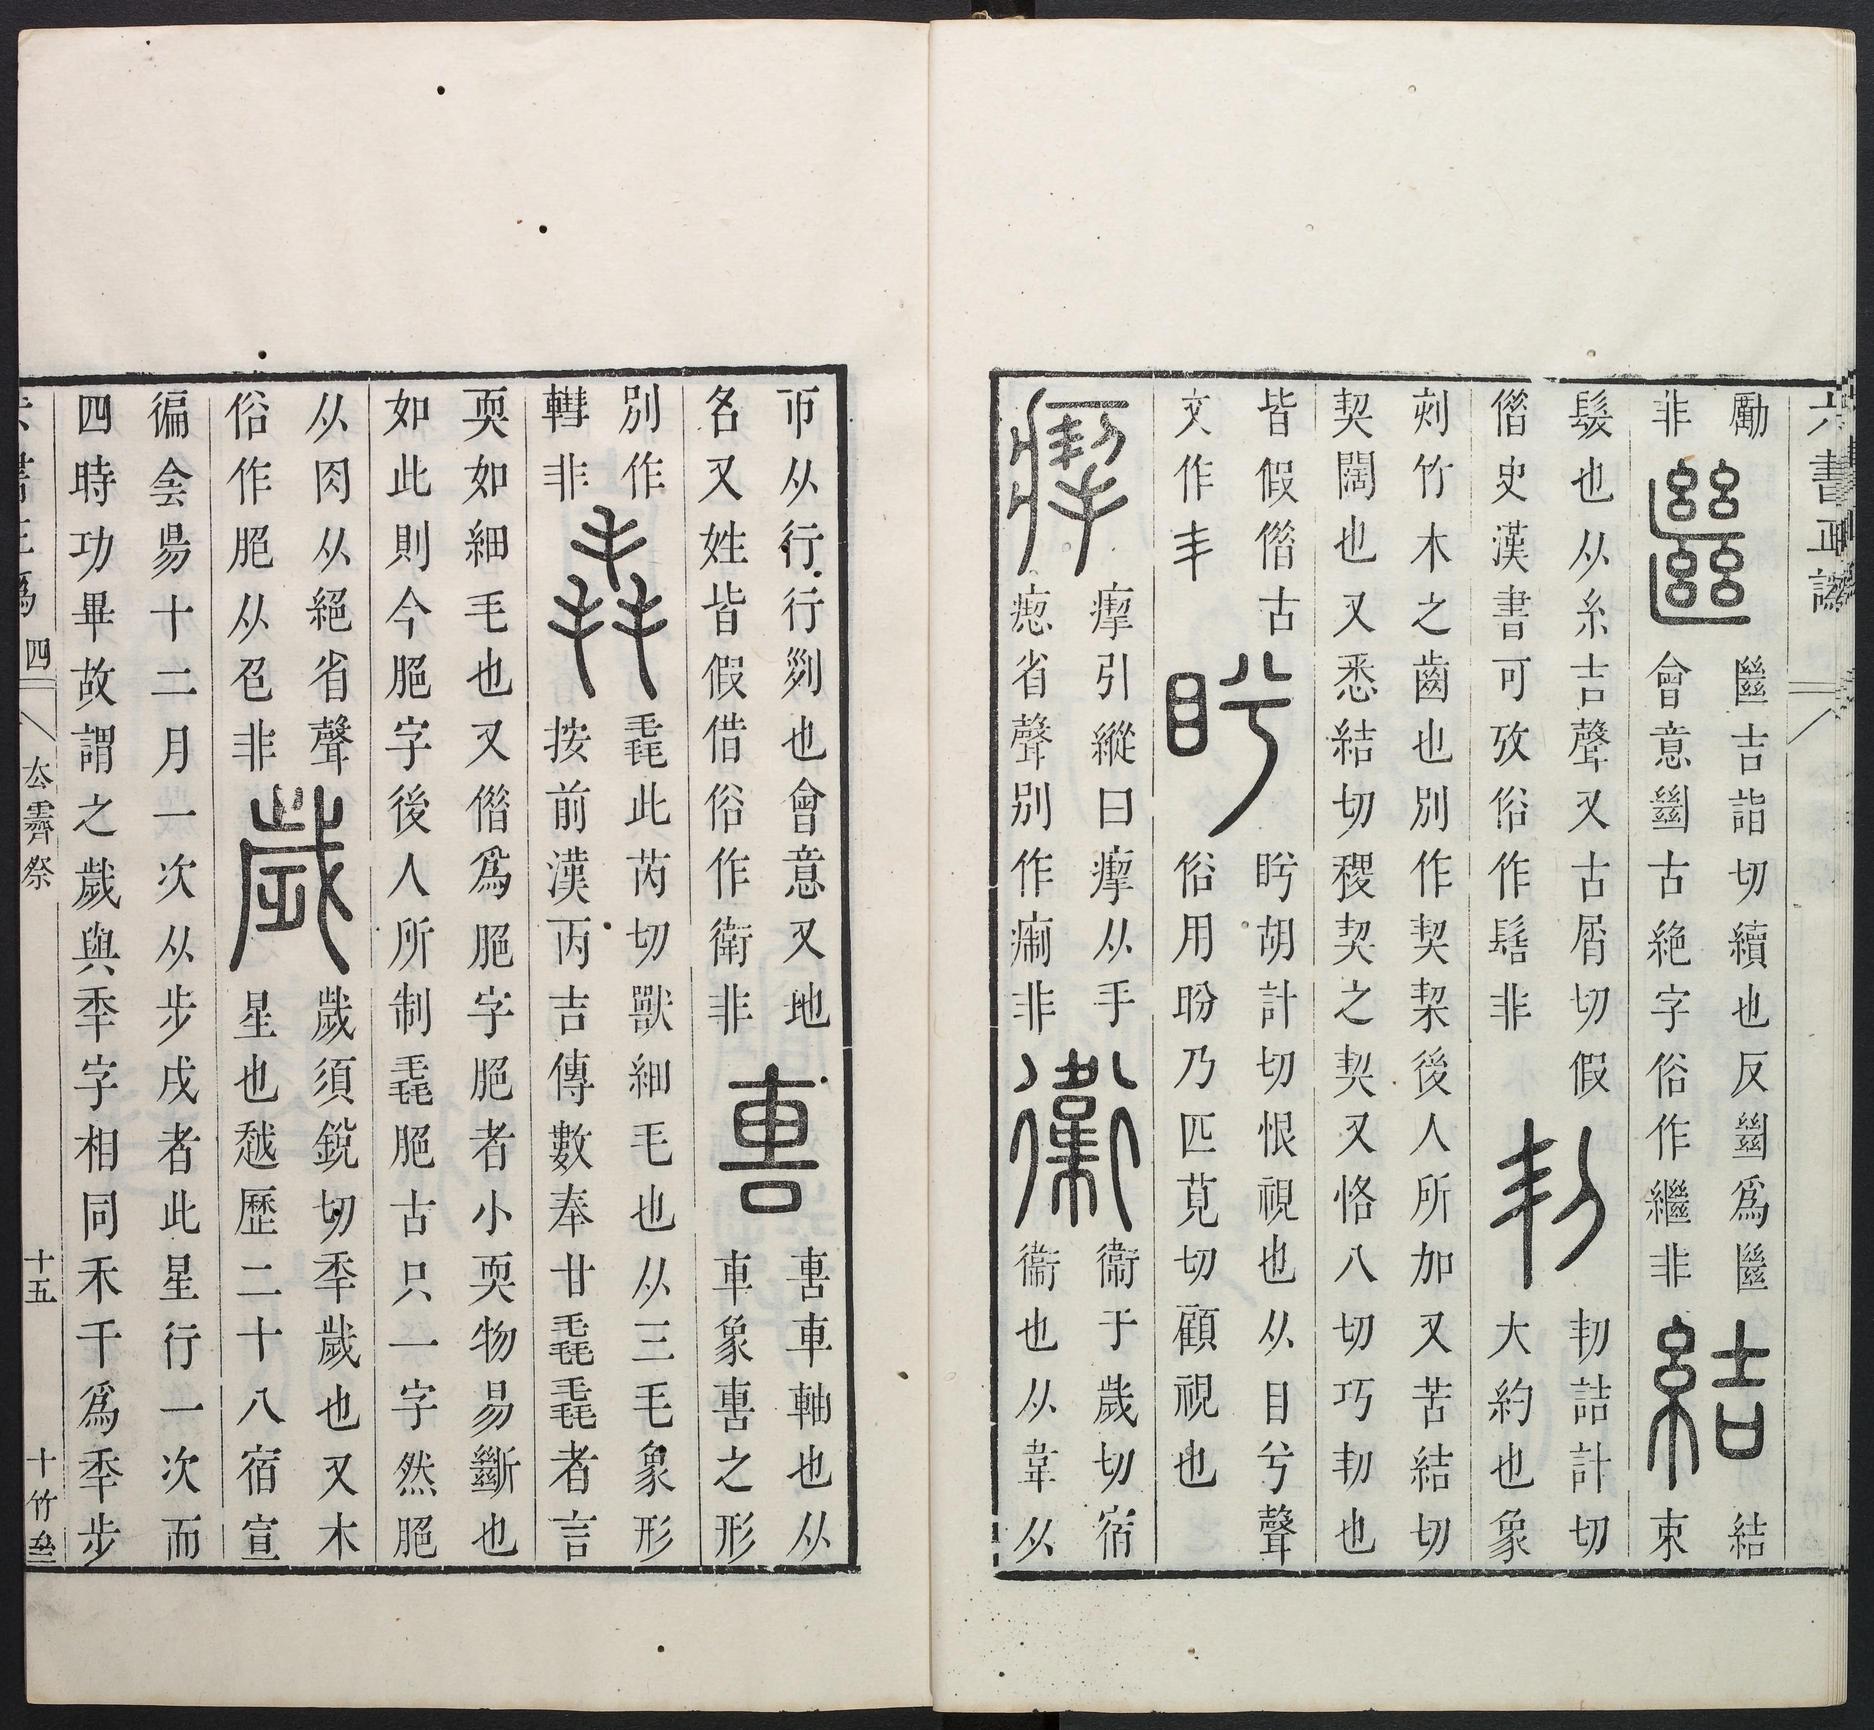 六書正譌
勵
非
㡭
㡭吉詣切續也反𢇍爲㡭
會意𢇍古絶字俗作繼非
結
結
束
髮也从糸吉聲又古屑切假
借史漢書可攷俗作髻非
㓞
㓞詰計切
大約也象
刻竹木之齒也別作契栔後人所加又苦結切
契闊也又悉結切稷契之契又恪八切巧㓞也
皆假借古
文作丯
盻
盻胡計切恨視也从目兮聲
俗用盼乃匹莧切顧視也
瘛
㨖引縱曰㨖从手
瘛省聲別作痸非
衞
衞于歲切宿
衞也从韋从
帀从行行列也會意又地
名又姓皆假借俗作衛非
軎
軎車軸也从
車象軎之形
別作
轊非
毳
毳此芮切獸細毛也从三毛象形
按前漢丙吉傳數奉甘毳毳者言
耎如細毛也又借爲脃字脃者小耎物易斷也
如此則今脃字後人所制毳脃古只一字然脃
从肉从絕省聲
俗作脃从色非
歲
歲須銳切秊歲也又木
星也越歷二十八宿宣
徧侌昜十二月一次从步戌者此星行一次而
四時功畢故謂之歲與秊字相同禾千爲秊步
六書正譌 四 厺霽祭 十五 十竹